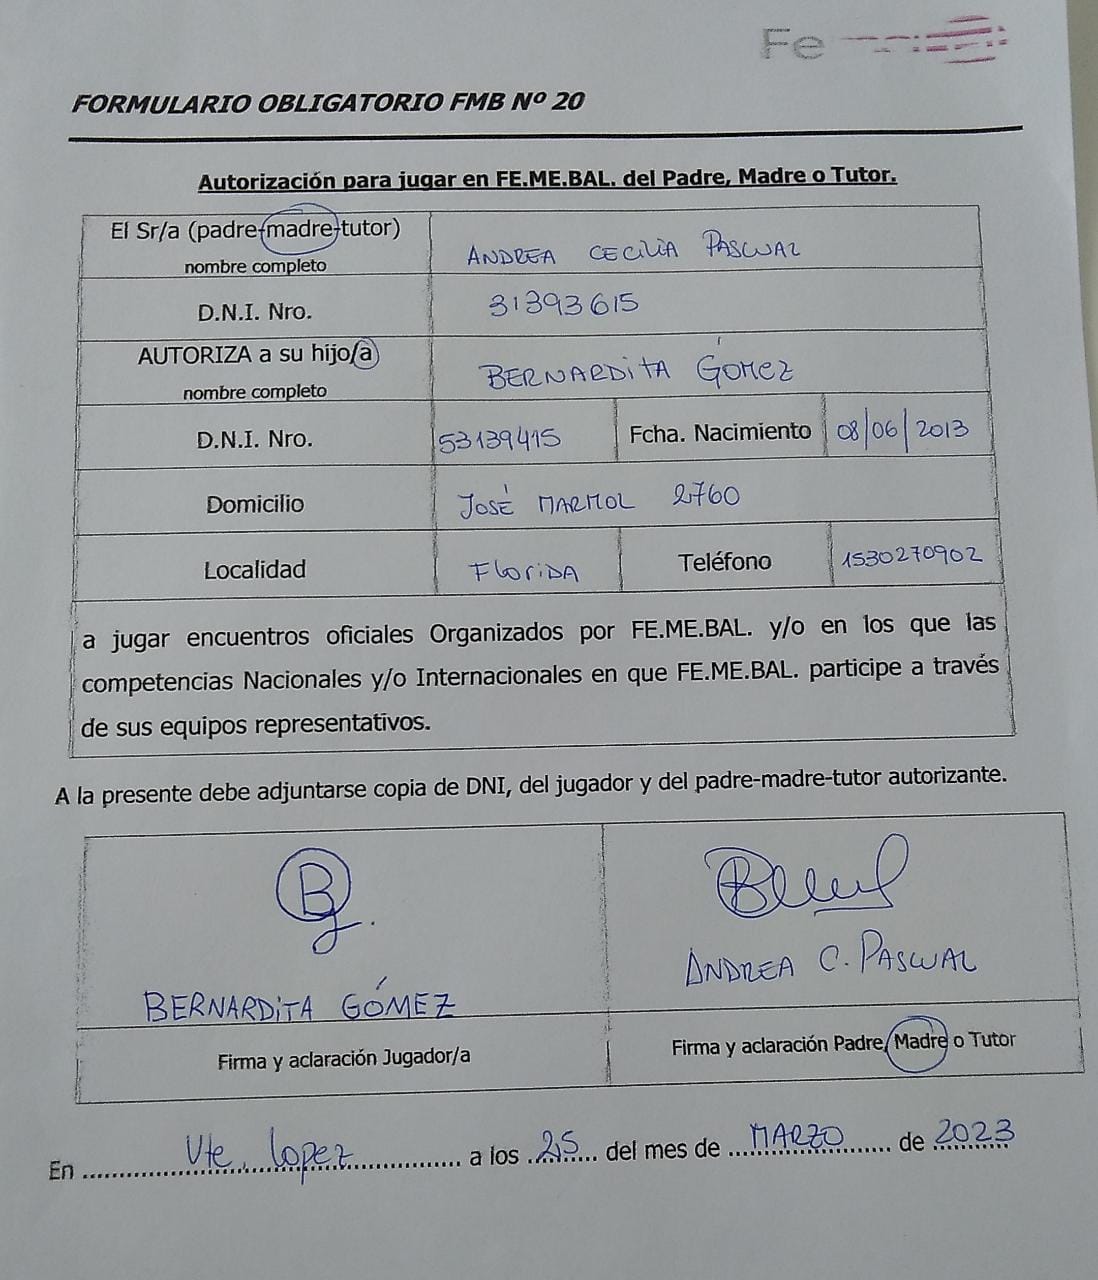 Fe
FORMULARIO OBLIGATORIO FMB Nº 20
Autorización para jugar en FE.ME.BAL. del Padre, Madre o Tutor.
El Sr/a (padre-madre-tutor)
nombre completo
ANDREA CECILIA PASCUAL
D.N.I. Nro.
31393615
AUTORIZA a su hijo/a
nombre completo
BERNARDITA GÓMEZ
D.N.I. Nro. 53139415 Fcha. Nacimiento 08/06/2013
Domicilio JOSÉ MARMOL 2760
Localidad FLORIDA Teléfono 1530270902
a jugar encuentros oficiales Organizados por FE.ME.BAL. y/o en los que las
competencias Nacionales y/o Internacionales en que FE.ME.BAL. participe a través
de sus equipos representativos.
A la presente debe adjuntarse copia de DNI, del jugador y del padre-madre-tutor autorizante.
B
BERNARDITA GÓMEZ
Firma y aclaración Jugador/a
ANDREA C. PASCUAL
Firma y aclaración Padre, Madre o Tutor
En Vte. Lopez a los 25 del mes de MARZO de 2023